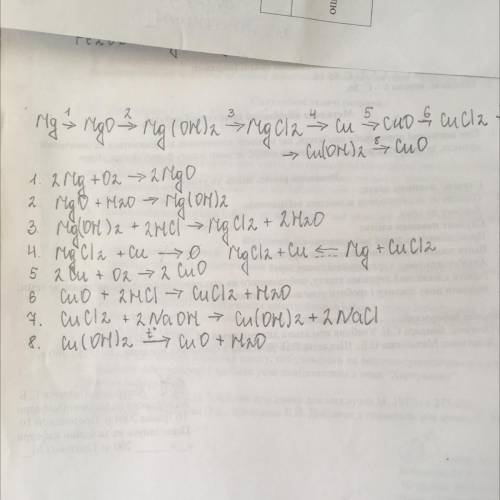 Mg →¹ MgO →² Mg(OH)2 →³ MgCl2 →⁴ Cu →⁵ CuO →⁶ CuCl2 →
→ Cu(OH)2 →⁸ CuO
1. 2Mg + O2 → 2MgO
2. MgO + H2O → Mg(OH)2
3. Mg(OH)2 + 2HCl → MgCl2 + 2H2O
4. MgCl2 + Cu → O MgCl2 + Cu ← Mg + CuCl2
5 2Cu + O2 → 2CuO
6 CuO + 2HCl → CuCl2 + H2O
7. CuCl2 + 2NaOH → Cu(OH)2 + 2NaCl
8. Cu(OH)2 →t° CuO + H2O